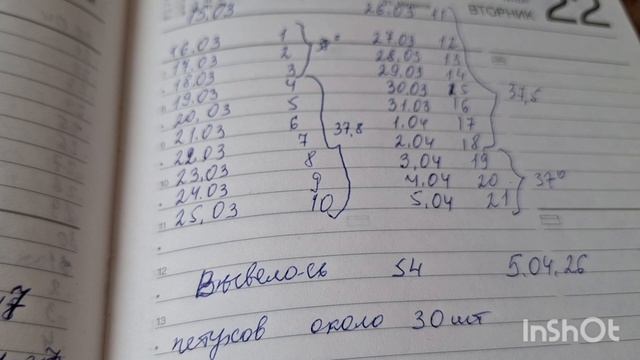 15.03
16.03 1
17.03 2
18.03 3
19.03 4
20.03 5
21.03 6
22.03 7
23.03 8
24.03 9
25.03 10
37,8
ВТОРНИК 22
26.03 11
27.03 12
28.03 13
29.03 14
30.03 15
31.03 16
1.04 17
2.04 18
3.04 19
4.04 20
5.04 21
37,5
37°
12
Вывелось 54 5.04.26
13
петухов около 30 шт
InShOt